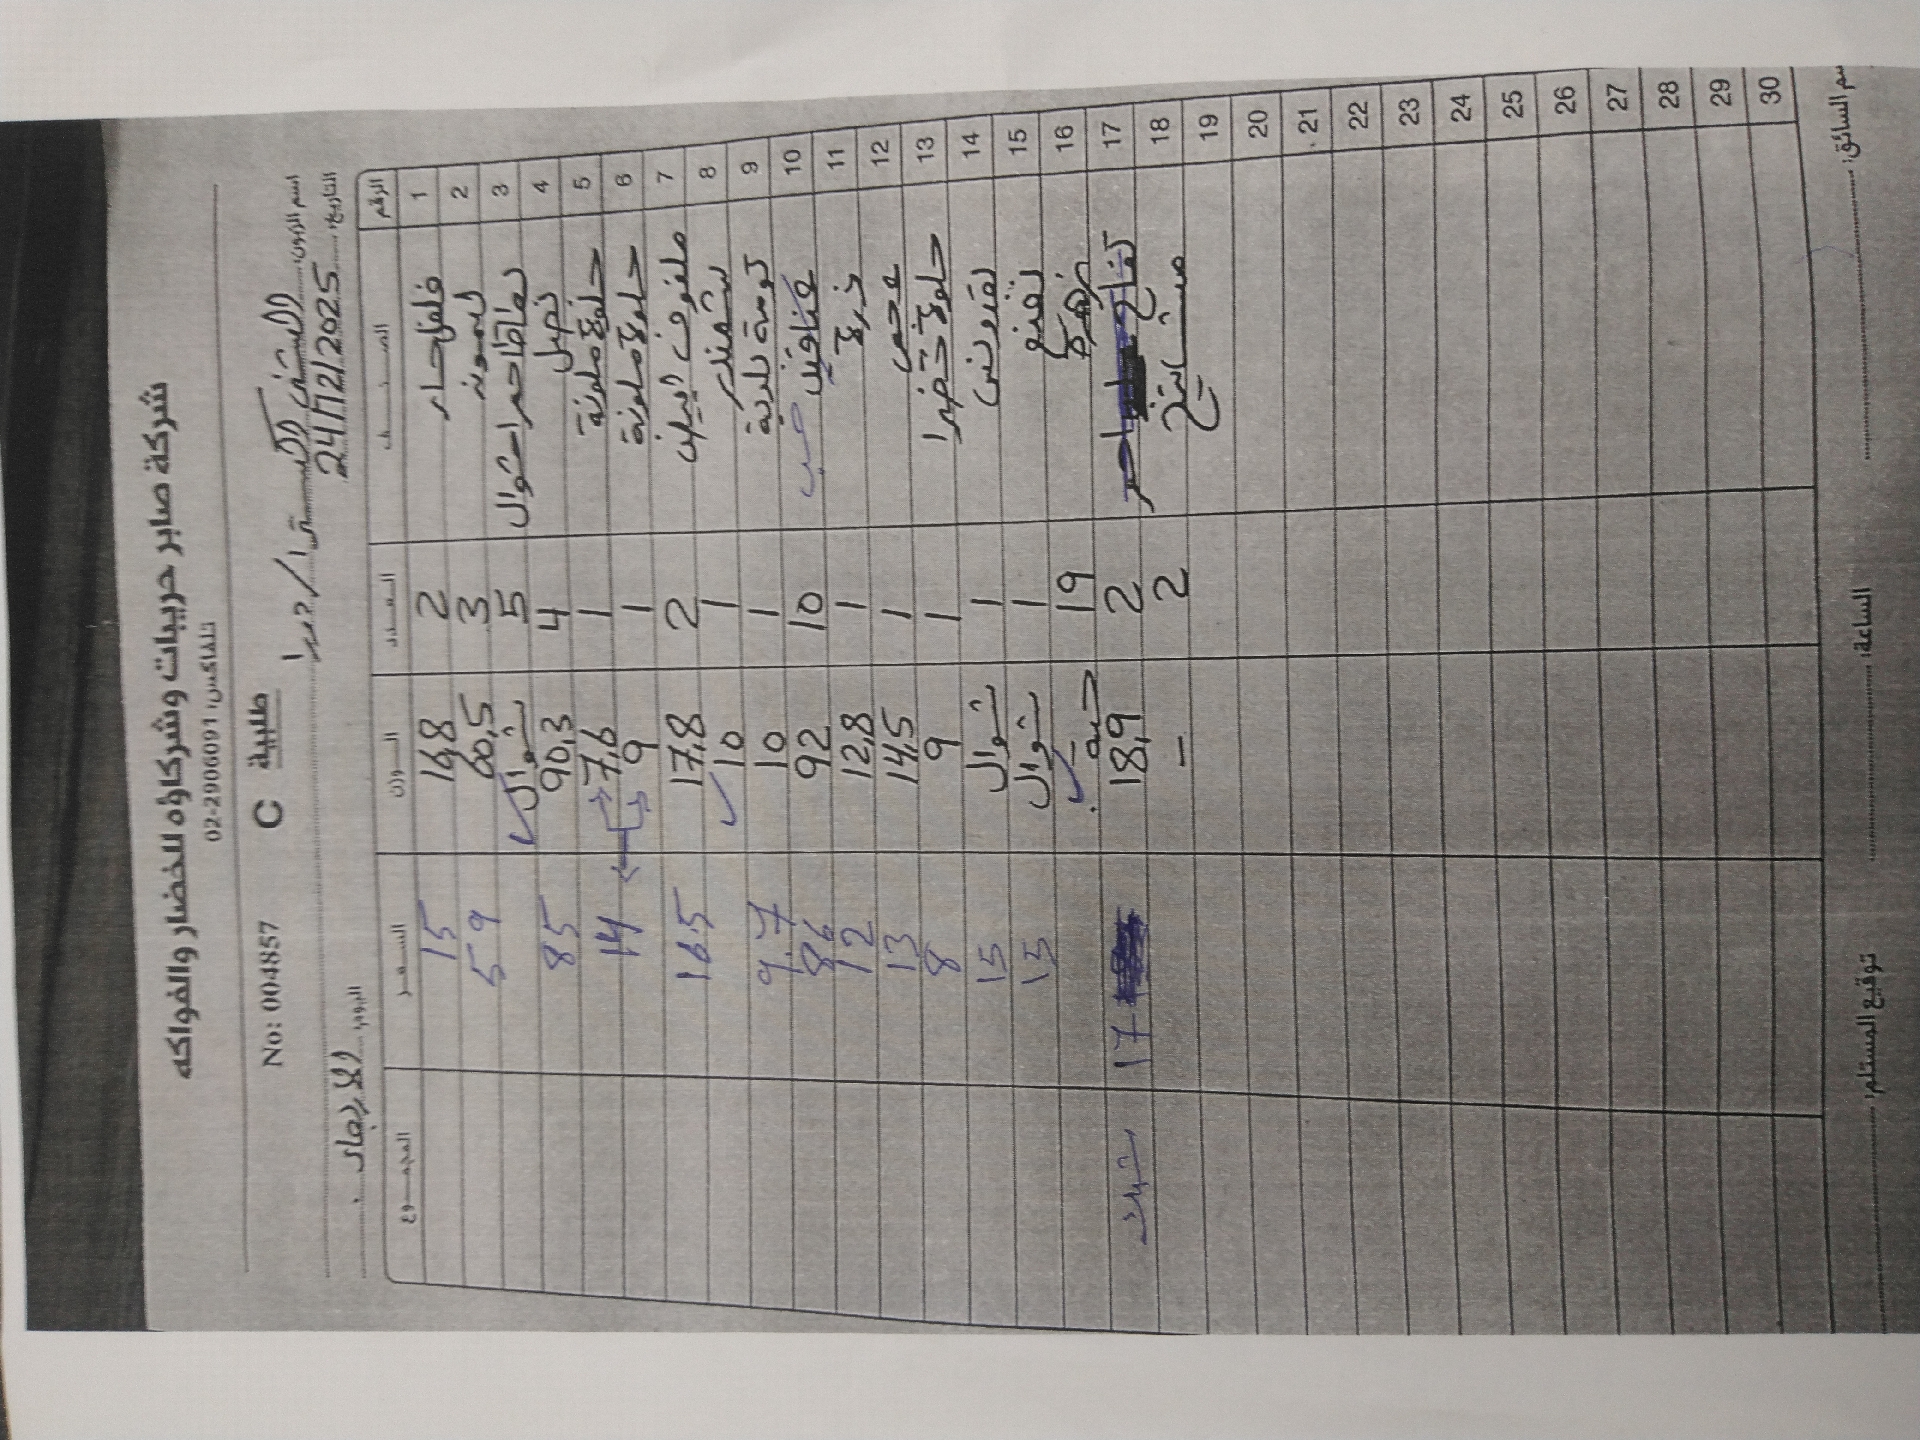 شركة صابر حريبات وشركاؤه للخضار والفواكه
تلفاكس: 02-2906091
No: 004857 C طلبية
اسم الزبون:
اليوم: الأربعاء التاريخ: 24/12/2025
الرقم الصنف العدد الوزن السعر المجموع
1 فلفل حار 2 16,8 15
2 ليمون 3 60,5 59
3 بطاطا احمر شوال 5 شوال
4 بصل 4 90,3 85
5 حلوة ملونة 1 7,6
6 حلوة ملونة 1 9 14
7 ملفوف ابيض 2 17,8 16.5
8 شمندر 1 10
9 كوسة بلدية 1 10 9.7
10 10 92 86
11 خزرة 1 12,8 12
12 عجمي 1 14,5 13
13 حلوة خضرا 1 9 8
14 بقدونس 1 شوال 15
15 نعنع 1 شوال 15
16 زهرة 19 حبه
17 تفاح احمر 2 18,9 17
18 2 -
19
20
21
22
23
24
25
26
27
28
29
30
اسم السائق: الساعة: توقيع المستلم: